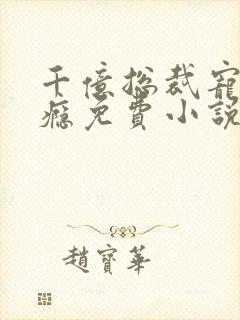 千億總裁寵
癮免費小說
趙寶華